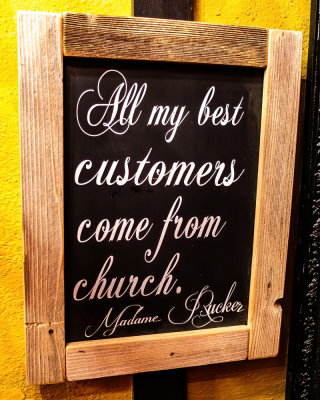 All my best
customers
come from
church.
Madame Rucker